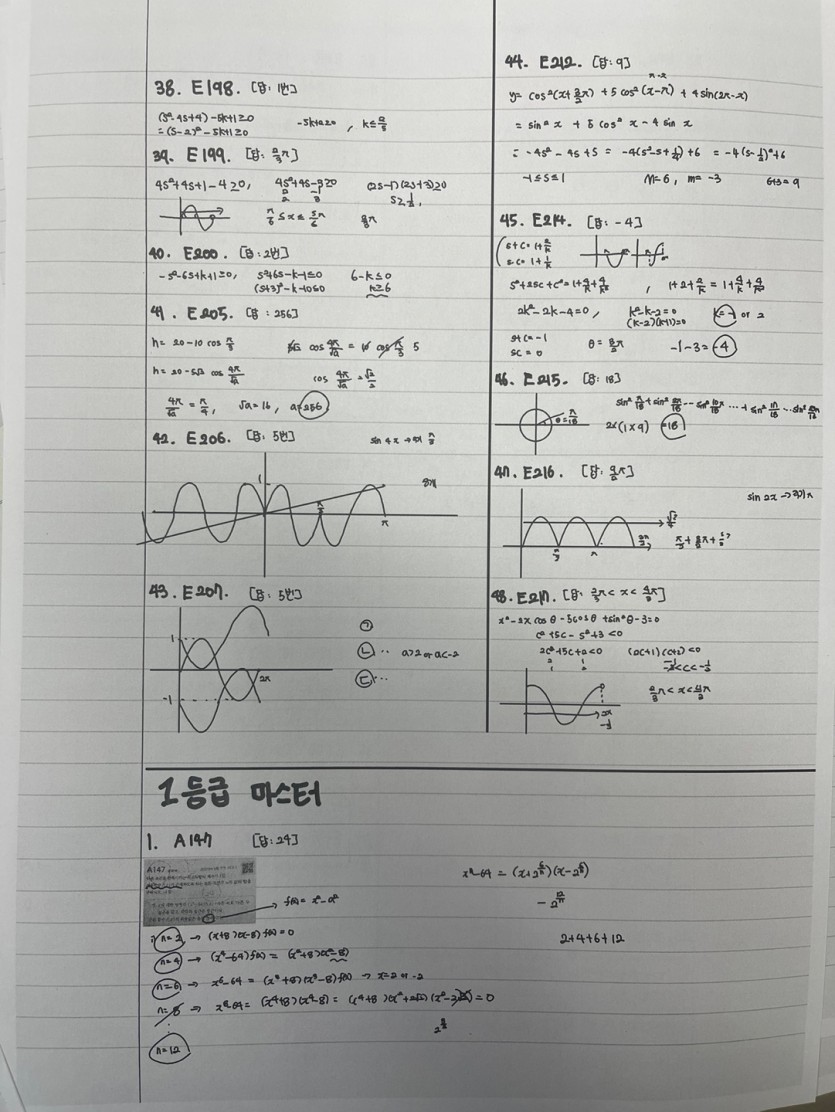 38. E198. [답: 1번]
(s²-4s+4)-5k+1≥0
-5k+1≥0, k≤
=(s-2)²-5k+1≥0
39. E199. [답: 2/3π]
4s²+4s+1-4≥0, 4s²+4s-3≥0 (2s-1)(2s+3)≥0
s≥1/2,
π/6≤x≤5π/6
40. E200. [답: 2번]
-s²-6s+k+1≥0, s²+6s-k-1≤0 6-k≤0
(s+3)²-k-10≤0 k≥6
41. E205. [답: 256]
h= 20-10 cos π/3
cos 4π/√a = 5
h= 20-5√2 cos 4π/√a
cos 4π/√a = √2/2
4π/√a = π/4, √a=16, a=256
42. E206. [답: 5번] sin 4x → 주기 π/2
8개
1
π
43. E207. [답: 5번]
1
-1
2π
㉠
㉡ ·· a>2 or a<-2
㉢ ···
44. E212. [답: 9]
y= cos²(x+3/2π) + 5 cos²(x-π) + 4 sin(2π-x)
= sin² x + 5 cos² x - 4 sin x
= -4s² - 4s + 5 = -4(s²-s+1/4)+6 = -4(s-1/2)²+6
-1≤s≤1 M=6, m=-3 6+3=9
45. E214. [답: -4]
s+c= 1+2/k
sc= 1+1/k
s²+2sc+c²=1+4/k+4/k², 1+2+2/k = 1+4/k+4/k²
2k²-2k-4=0, k²-k-2=0 k=-1 or 2
(k-2)(k+1)=0
s+c=-1
sc=0
θ=3/2π -1-3=-4
46. E215. [답: 18]
θ=π/18
2×(1×9) =18
47. E216. [답: 9/2π]
sin 2x → 주기 π
48. E217. [답: 2/3π < x < 4/3π]
x²-2x cos θ-5cos θ+sin²θ-3=0
c²+5c-s²+3<0
2c²+5c+2<0 (2c+1)(c+2)<0
-2<c<-1/2
2/3π<x<4/3π
1등급 마스터
1. A147 [답: 24]
A147
f(x)= x²-2²
n=2 → (x+8)(x-8)f(x)=0
n=4 → (x⁴-64)f(x) = (x²+8)(x²-8)
n=6 → x⁶-64 = (x³+8)(x³-8)f(x) → x=2 or -2
n=8 → x⁸-64= (x⁴+8)(x⁴-8)=
n=12
2+4+6+12